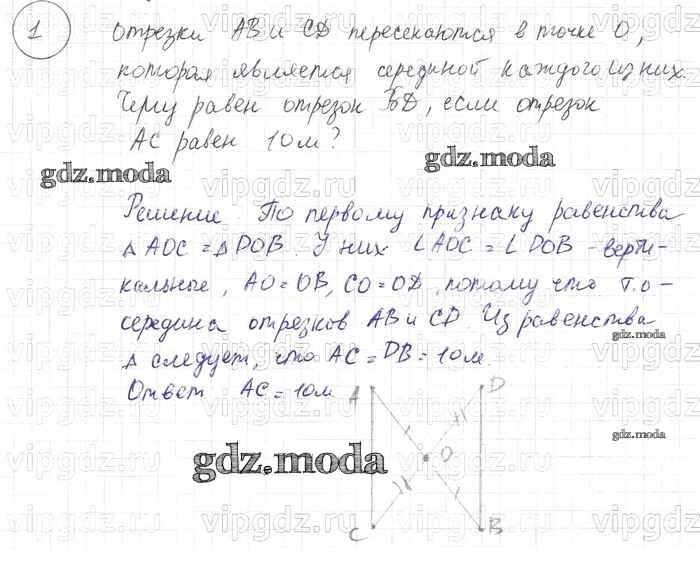 1 отрезки AB и CD пересекаются в точке O,
которая является серединой каждого из них.
Чему равен отрезок BD, если отрезок
AC равен 10 м?
gdz.moda
gdz.moda
Решение. По первому признаку равенства
△ AOC = △ DOB. У них ∠AOC = ∠DOB - верти-
кальные, AO = OB, CO = OD, потому что т.O -
gdz.moda
середина отрезков AB и CD. Из равенства
△ следует, что AC = DB = 10 м.
Ответ AC = 10 м.
A
D
O
gdz.moda
gdz.moda
C
B
vipgdz.ru